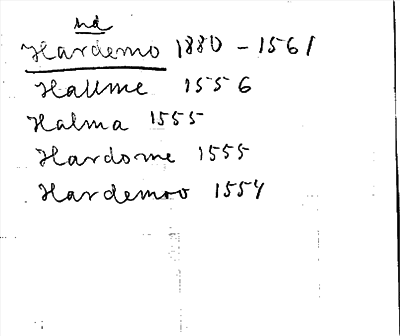 Hardemo 1880 - 1561
Hallme 1556
Halma 1555
Hardome 1555
Hardemoo 1554